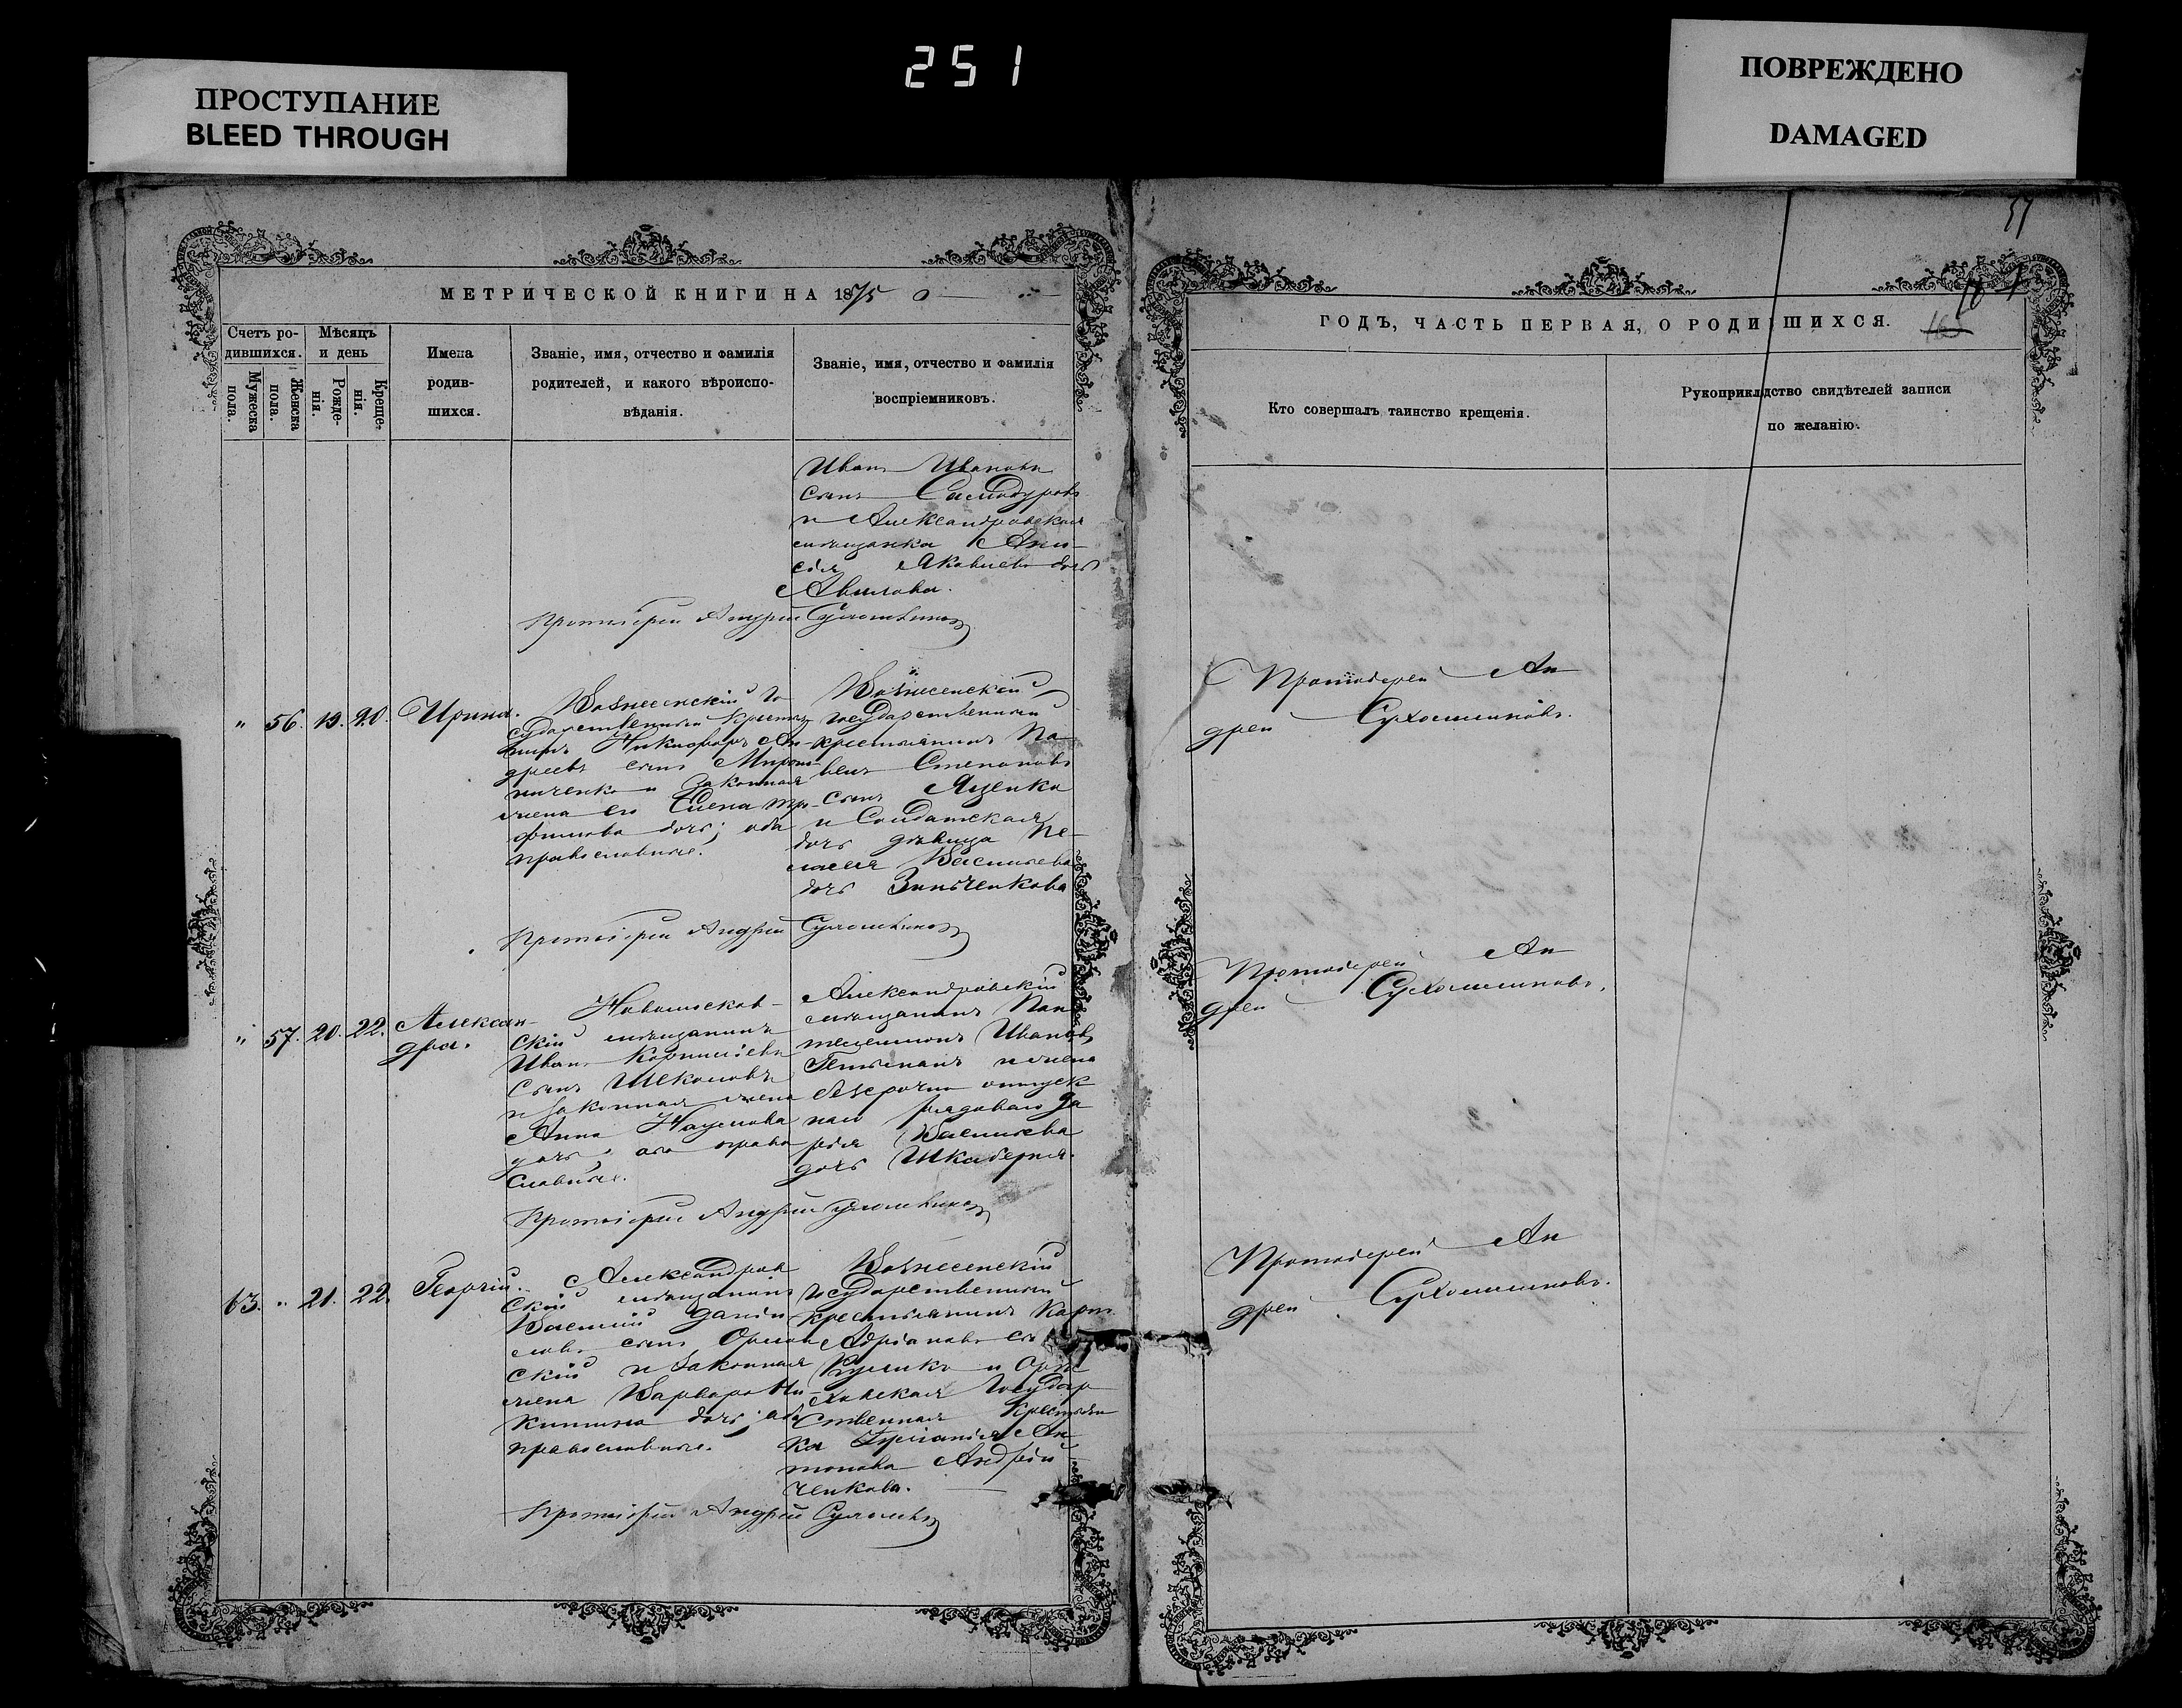 251
ПРОСТУПАНИЕ
BLEED THROUGH
ПОВРЕЖДЕНО
DAMAGED
МЕТРИЧЕСКОЙ КНИГИ НА 1875
Счетъ ро-
дившихся.
Мужеска
пола.
Женска
пола.
Мѣсяцъ
и день
Рожде-
нія.
Креще-
нія.
Имена
родив-
шихся.
Званіе, имя, отчество и фамилія
родителей, и какого вѣроиспо-
вѣданія.
Званіе, имя, отчество и фамилія
воспріемниковъ.
Иванъ Ивановъ
сынъ
и Александровская
мѣщанка Ани-
сія Яковлева дочь
Авилова.
Протоіерей Андрей
" 56. 19. 20. Ирина.
Вознесенскій го-
сударственный крестья-
нинъ Никифоръ Ан-
дреевъ сынъ Мирош-
ниченко и законная
жена его Елена Тро-
фимова дочь; оба
православные.
Вознесенскій
государственный
крестьянинъ Па-
велъ Степановъ
сынъ Яценко
и Солдатская
дочь дѣвица Пе-
лагея Васильева
дочь Зинченкова
Протоіерей Андрей
" 57. 20. 22. Алексан-
дра.
Новомосков-
скій мѣщанинъ
Иванъ Корнилiевъ
сынъ Шеколовъ
и законная жена
Анна Наумова
дочь, оба право
славные.
Александровскій
мѣщанинъ Пан
телеимонъ Ивановъ
Гетманъ и жена
безсрочно отпуск
наго рядоваго Да
рія Васильева
дочь
Протоіерей Андрей
63. " 21. 22. Георгій.
Александров
скій мѣщанинъ
Василій Дани-
ловъ сынъ Орлов
скій и законная
жена Варвара Ни-
китина дочь; оба
православные.
Вознесенскій
государственный
крестьянинъ Карп
Адріановъ
Кулико и
государ
ственная крестьян
ка Ан
тонова Андрій
ченкова.
Протоіерей Андрей
57
ГОДЪ, ЧАСТЬ ПЕРВАЯ, О РОДИВШИХСЯ.
Кто совершалъ таинство крещенія.
Рукоприкладство свидѣтелей записи
по желанію.
Протоіерей Ан
дрей Сухомлиновъ.
Протоіерей Ан
дрей Сухомлиновъ.
Протоіерей Ан
дрей Сухомлиновъ.